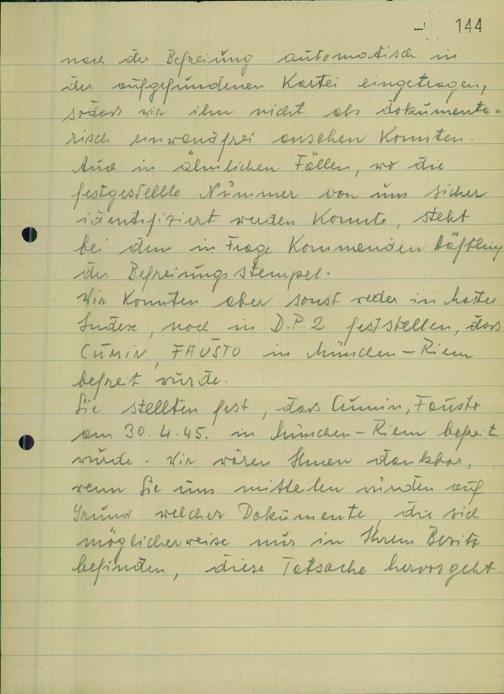 144
nach der Befreiung automatisch in
der aufgefundenen Kartei eingetragen,
sodass wir ihn nicht als dokumenta-
risch einwandfrei ansehen konnten.
Auch in ähnlichen Fällen, wo die
festgestellte Nummer von uns sicher
identifiziert werden konnte, steht
bei dem in Frage kommenden Häftling
der Befreiungsstempel.
Wir konnten aber sonst weder im Master
Index, noch in D.P.2 feststellen, dass
CUMIN, FAUSTO in München-Riem
befreit wurde.
Sie stellten fest, dass Cumin, Fausto
am 30.4.45. in München-Riem befreit
wurde. Wir wären Ihnen dankbar,
wenn Sie uns mitteilen würden auf
Grund welcher Dokumente, die sich
möglicherweise nur in Ihrem Besitz
befinden, diese Tatsache hervorgeht.